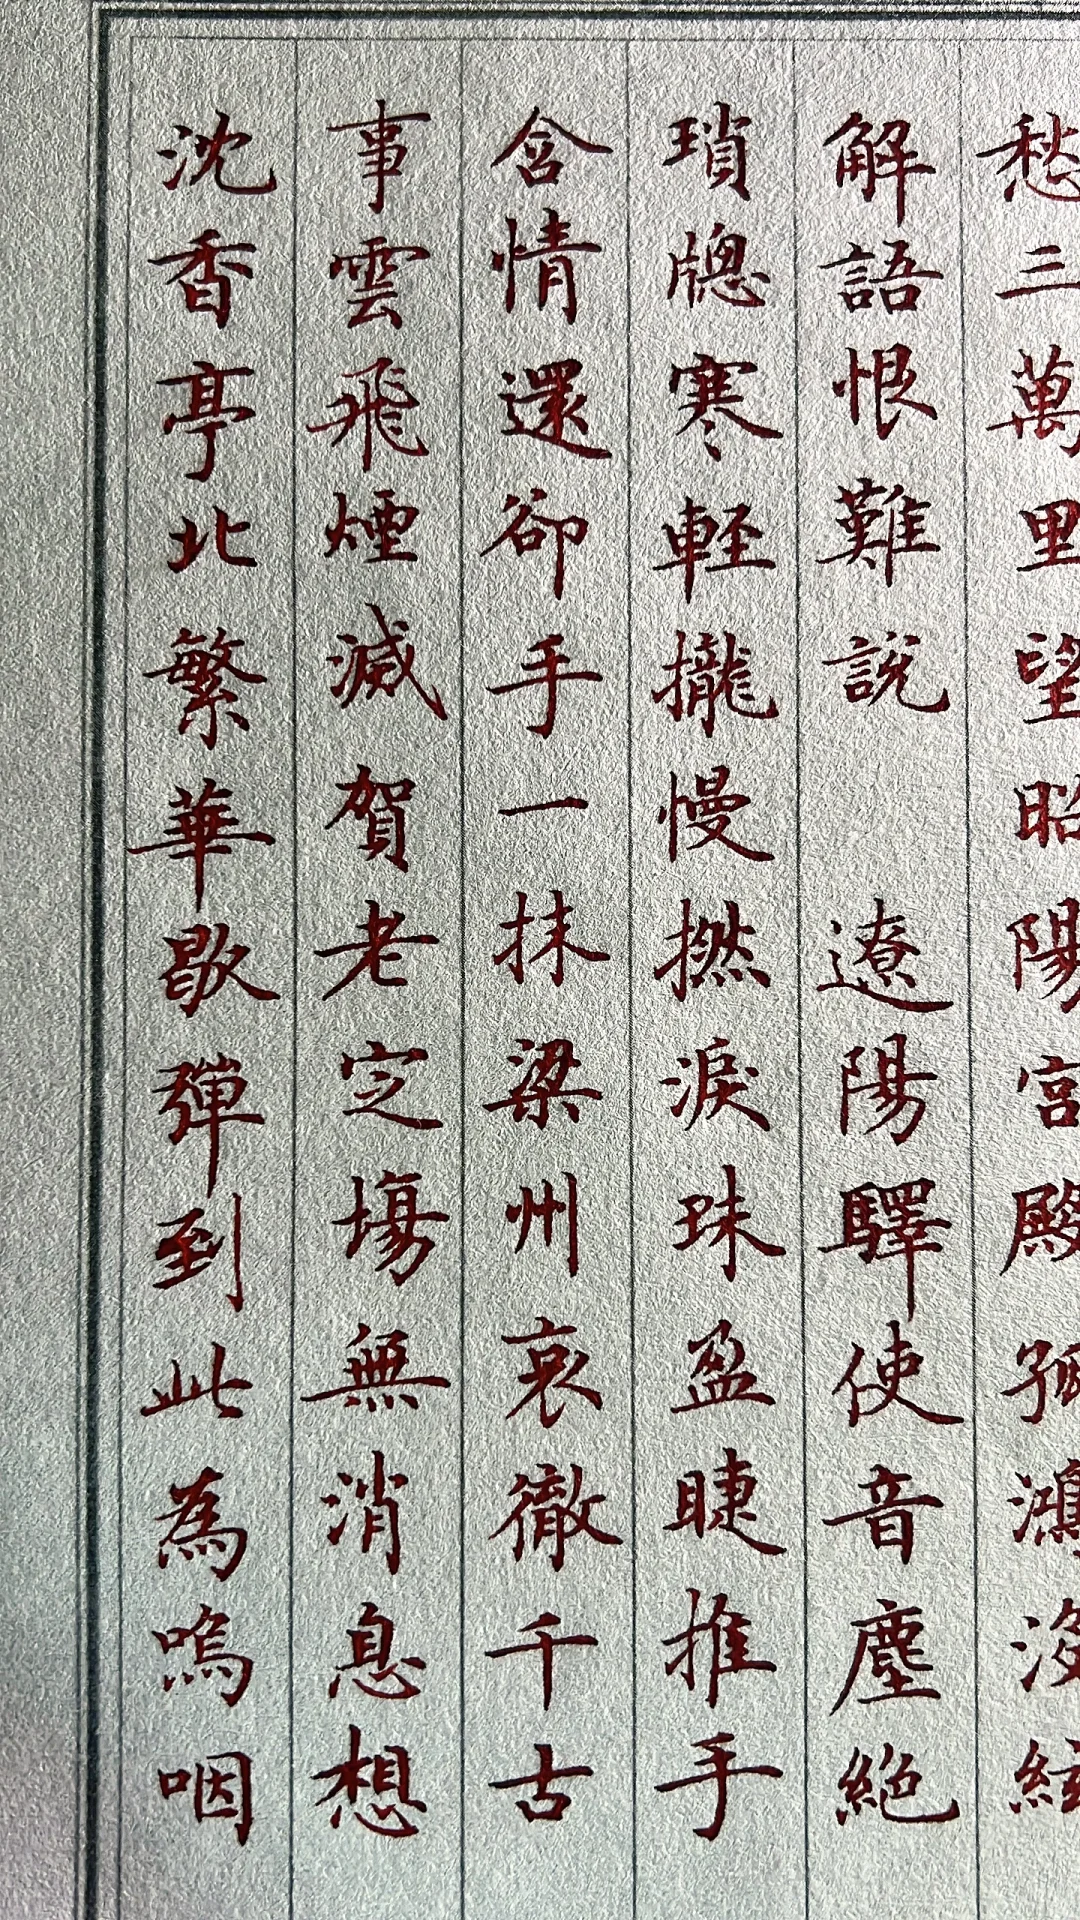 愁三萬里望昭陽宮殿孤鴻没絃
解語恨難說 遼陽驛使音塵絶
瑣牎寒軽攏慢撚淚珠盈睫推手
含情還卻手一抹梁州哀徹千古
事雲飛煙滅賀老定場無消息想
沈香亭北繁華歇彈到此為嗚咽